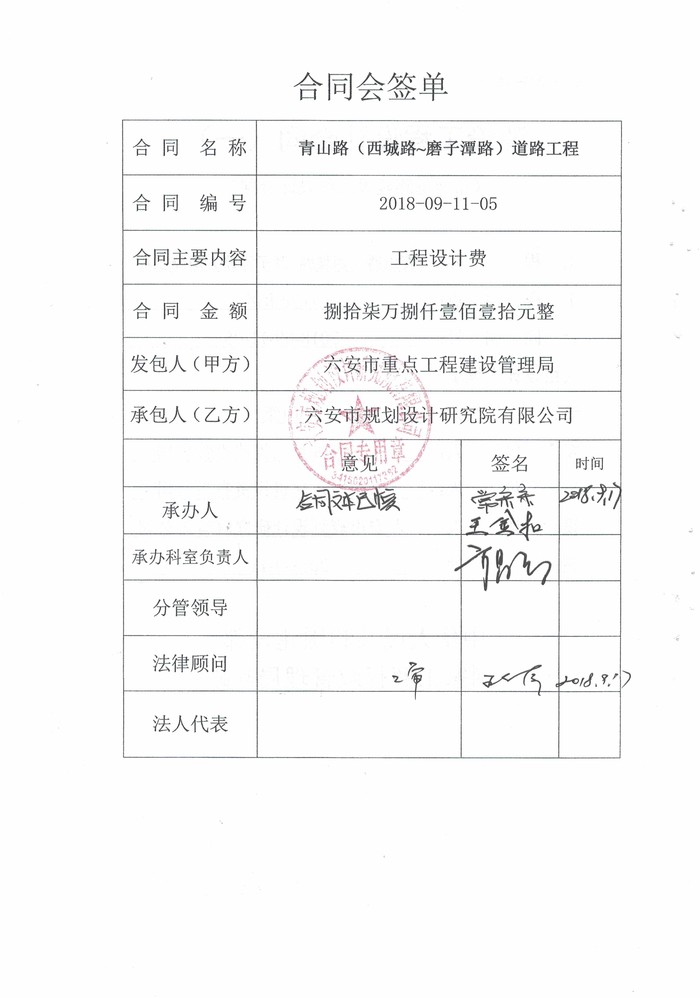 合同会签单
合同 名称 青山路（西城路~磨子潭路）道路工程
合同 编号 2018-09-11-05
合同主要内容 工程设计费
合同 金额 捌拾柒万捌仟壹佰壹拾元整
发包人（甲方） 六安市重点工程建设管理局
承包人（乙方） 六安市规划设计研究院有限公司
合同专用章
意见 签名 时间
承办人 2018.9.17
承办科室负责人
分管领导
法律顾问 已审 2018.9.17
法人代表